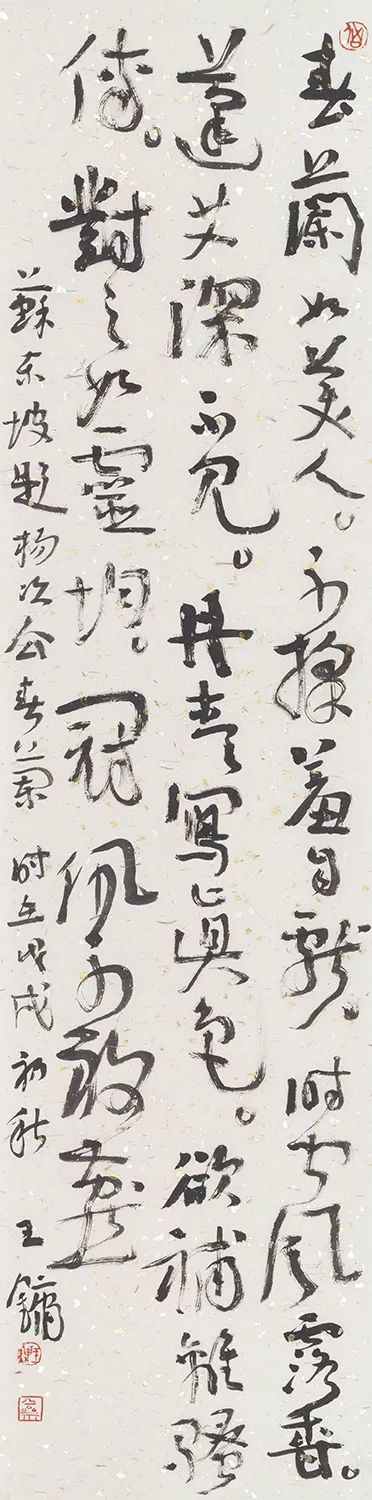 春蘭如美人。不採羞自獻。时聞風露香。
蓬艾深不見。丹青寫真色。欲補離騷
傳。對之如靈均。冠佩不敢燕
蘇东坡題杨次公春蘭 时在戊戌初秋 王鏞